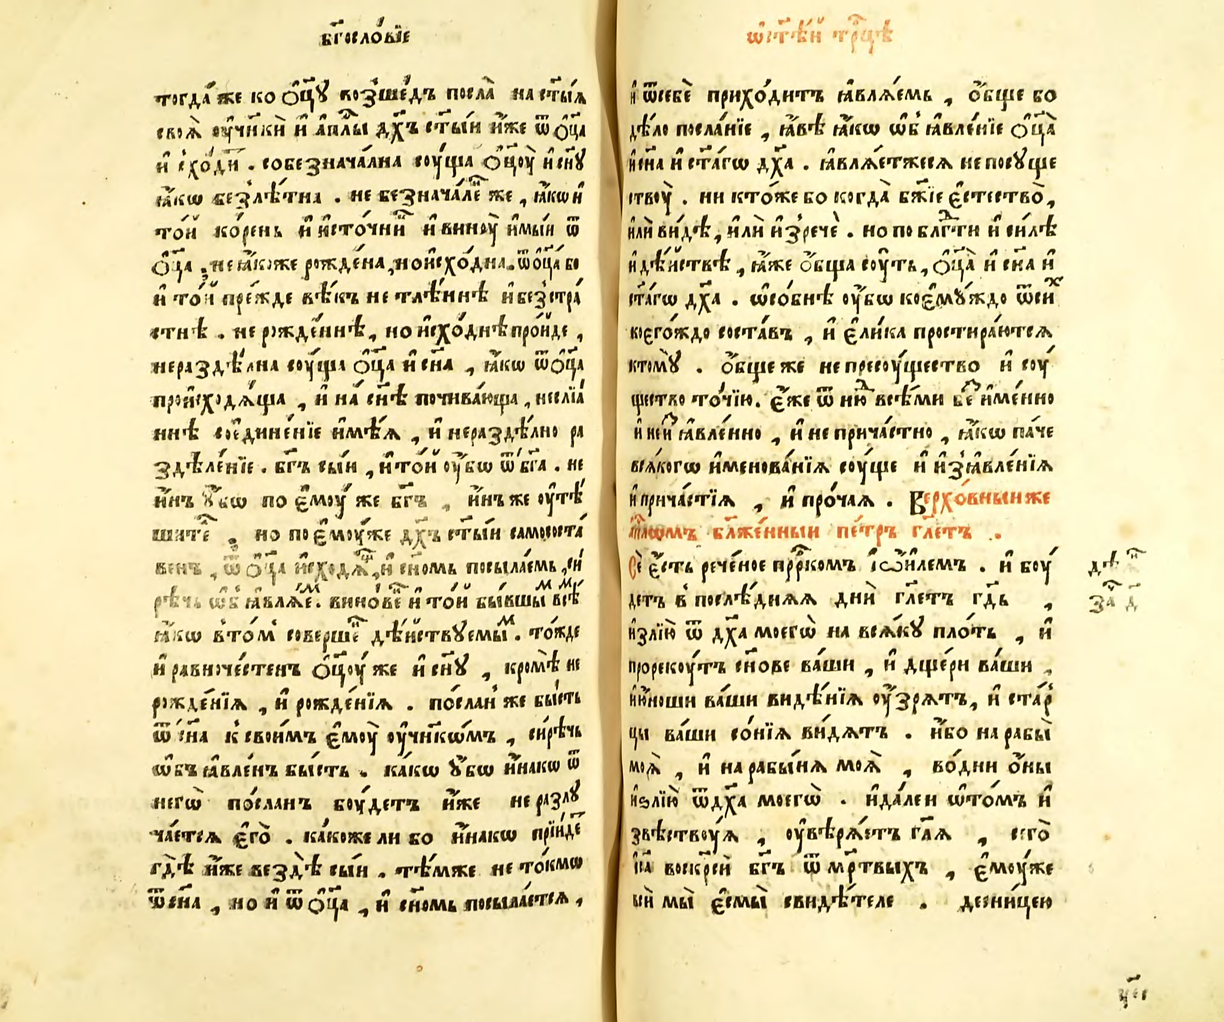 бг҃ословїе
тогда́ же ко ѻ҆ц҃ꙋ возше́дъ посла̀ на ст҃ы́ѧ
своѧ̀ оу҆чн҃кѝ и҆ а҆пл҃ы дх҃ъ ст҃ыи и҆́же ѿ ѻ҆ц҃а
и҆ сходи . собезнача́лна соу́ща ѻ҆ц҃оу̀ и҆ сн҃ꙋ
ꙗ҆́кѡ безлѣ́тна . не безнача́лє же , ꙗ҆́кѡ и҆
то́й ко́рень и҆ и҆сто́чни и҆ виноу̀ и҆мы́и ѿ
ѻ҆ц҃а , не ꙗ҆́коже рожде́на , но и҆схо́дна . ѿ ѻ҆ц҃а бо
и҆ то́й пре́жде вѣ́къ не тлѣ́ннѣ и҆ безстра́
стнѣ . не рожде́ннѣ , но и҆схо́днѣ про́йде ,
нераздѣ́лна соу́ща ѻ҆ц҃а и҆ сн҃а , ꙗ҆́кѡ ѿ ѻ҆ц҃а
происходѧ́ща , и҆ на́ сн҃ѣ почива́юща , неслїѧ́
ннѣ сое҆дине́нїе и҆мѣ́ѧ , и҆ нераздѣ́лно ра
здѣле́нїе . бг҃ъ сы́и , и҆ то́й оу҆́бѡ ѿ бг҃а . не
и҆́нъ ᲂу҆́бѡ по є҆моу́ же бг҃ъ , и҆́нъ же оу҆тѣ́
шате , но по є҆моу́же дх҃ъ ст҃ыи самососта́
венъ , ѿ ѻ҆ц҃а и҆сходѧ , и҆ сн҃омь посыла́емь , си
рѣчь ѡ҆б̾ ꙗ҆влѧ́е . вино́ве и҆ то́й бы́вшым всѣ́м
ꙗ҆́кѡ в̾ то́м̾ соверше́ дѣ́йствуемы . то́жде
и҆ равноче́стенъ ѻ҆ц҃оу́ же и҆ сн҃ꙋ , кромѣ̀ не
рожде́нїѧ , и҆ рожде́нїѧ . по́слан̾ же бы́сть
ѿ сн҃а к̾ свои́мъ є҆моу̀ оу҆чн҃кѡ́мъ , си́рѣчь
ѡ҆бъ ꙗ҆вле́нъ бы́сть . ка́кѡ ᲂу҆́бѡ и҆на́кѡ ѿ
негѡ̀ по́сланъ боу́детъ и҆́же не разлꙋ
ча́етсѧ є҆гѡ̀ . ка́коже ли бо и҆на́кѡ прїи́де
гдѣ̀ и҆́же вездѣ̀ сы́и . тѣ́мже не то́кмѡ
ѿ сн҃а , но и҆ ѿ ѻ҆ц҃а , и҆ сн҃омь посыла́етсѧ ,
ѡ҆ ст҃ѣ́й тр҃цѣ
и҆ ѿ себѐ прихо́дитъ ꙗ҆влѧ́емь , ѻ҆́бще бо
дѣ́ло посла́нїе , ꙗ҆́вѣ ꙗ҆́кѡ ѡ҆б̾ ꙗ҆вле́нїе ѻ҆ц҃а̀
и҆ сн҃а и҆ ст҃а́гѡ дх҃а . ꙗ҆влѧ́етжесѧ не по суще
ствоу̀ . ни кто́же бо когда̀ бж҃їе є҆стество̀ ,
и҆лѝ ви́дѣ , и҆лѝ и҆зречѐ . но по блг҃ти и҆ си́лѣ
и҆ дѣ́йствѣ , ꙗ҆́же ѻ҆́бща соу́ть , ѻ҆ц҃а̀ и҆ сн҃а и҆
ст҃а́гѡ дх҃а . ѡ҆со́бнѣ оу҆́бѡ коє҆мꙋ́ждо ѿ си́х
коєго́ждо соста́въ , и҆ є҆ли́ка простира́ютсѧ
к̾ томꙋ̀ . ѻ҆́бще же не пресоу́щество и҆ соу́
щество то́чїю . є҆́же ѿ ни всѣ́ми бе имённо
и҆ неи ꙗ҆вле́нно , и҆ не прича́стно , ꙗ҆́кѡ па́че
всѧ́когѡ и҆менова́нїѧ соу́ще и҆ и҆зꙗ҆вле́нїѧ
и҆ прича́стїѧ , и҆ про́чаѧ . Верхо́вныи же
а҆пл҃ѡмъ бл҃же́нныи пе́тръ гл҃етъ .
Сѐ є҆́сть рече́ное прⷪ҇ркомъ і҆ѡи́лемъ . и҆ боу́
детъ в̾ послѣ́днѧѧ дни́ гл҃етъ гд҃ь ,
и҆злїю̀ ѿ дх҃а моегѡ̀ на всѧ́кꙋ пло́ть , и҆
прореку́тъ сн҃ове ва́ши , и҆ дще́ри ва́ши ,
и҆ ю҆́ноши ва́ши видѣ́нїѧ оу҆́зрѧтъ , и҆ ста́р
цы ва́ши со́нїѧ ви́дѧтъ . и҆́бо на рабы̀
моѧ̀ , и҆ на рабы́нѧ моѧ̀ , во́ дни ѻ҆́ны
и҆злїю̀ ѿ дх҃а моегѡ̀ . и҆ да́леи ѡ҆ то́мъ и҆
звѣ́ствоуѧ , оу҆вѣрѧ́етъ гл҃ѧ , сего̀
і҆с҃а воскр҃си́ бг҃ъ ѿ ме́ртвыхъ , є҆моу́же
всѝ мы̀ є҆смы̀ свидѣ́теле . десни́цею
дѣ
за д